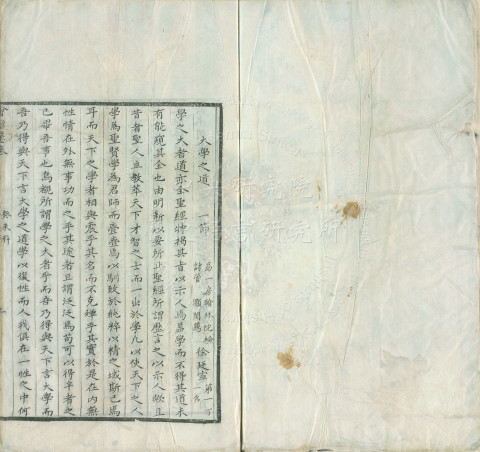 大學之道 一節
易一房翰林院檢
討管 顧閱薦 徐廷 第一百 名
學之大者道亦全聖經特揭其旨以示人焉葢學而不得其道未
有能窺其全也由明新以要所止聖經所謂歷言之以示人歟且
昔者聖人立教萃天下才智之士而一出於學凡以使天下之人
學為聖賢學為君師而亹亹焉以馴致於純粹以精之域斯已焉
耳而天下之學者相與震乎其名而不克殫乎其實於是在內無
性情在外無事功而之乎其途者且謂泛泛焉苟可以得半者之
已畢吾事也烏覩所謂學之大者乎而吾乃得與天下言大學而
吾乃得與天下言大學之道學以復性而人我俱在一性之中何
癸未科